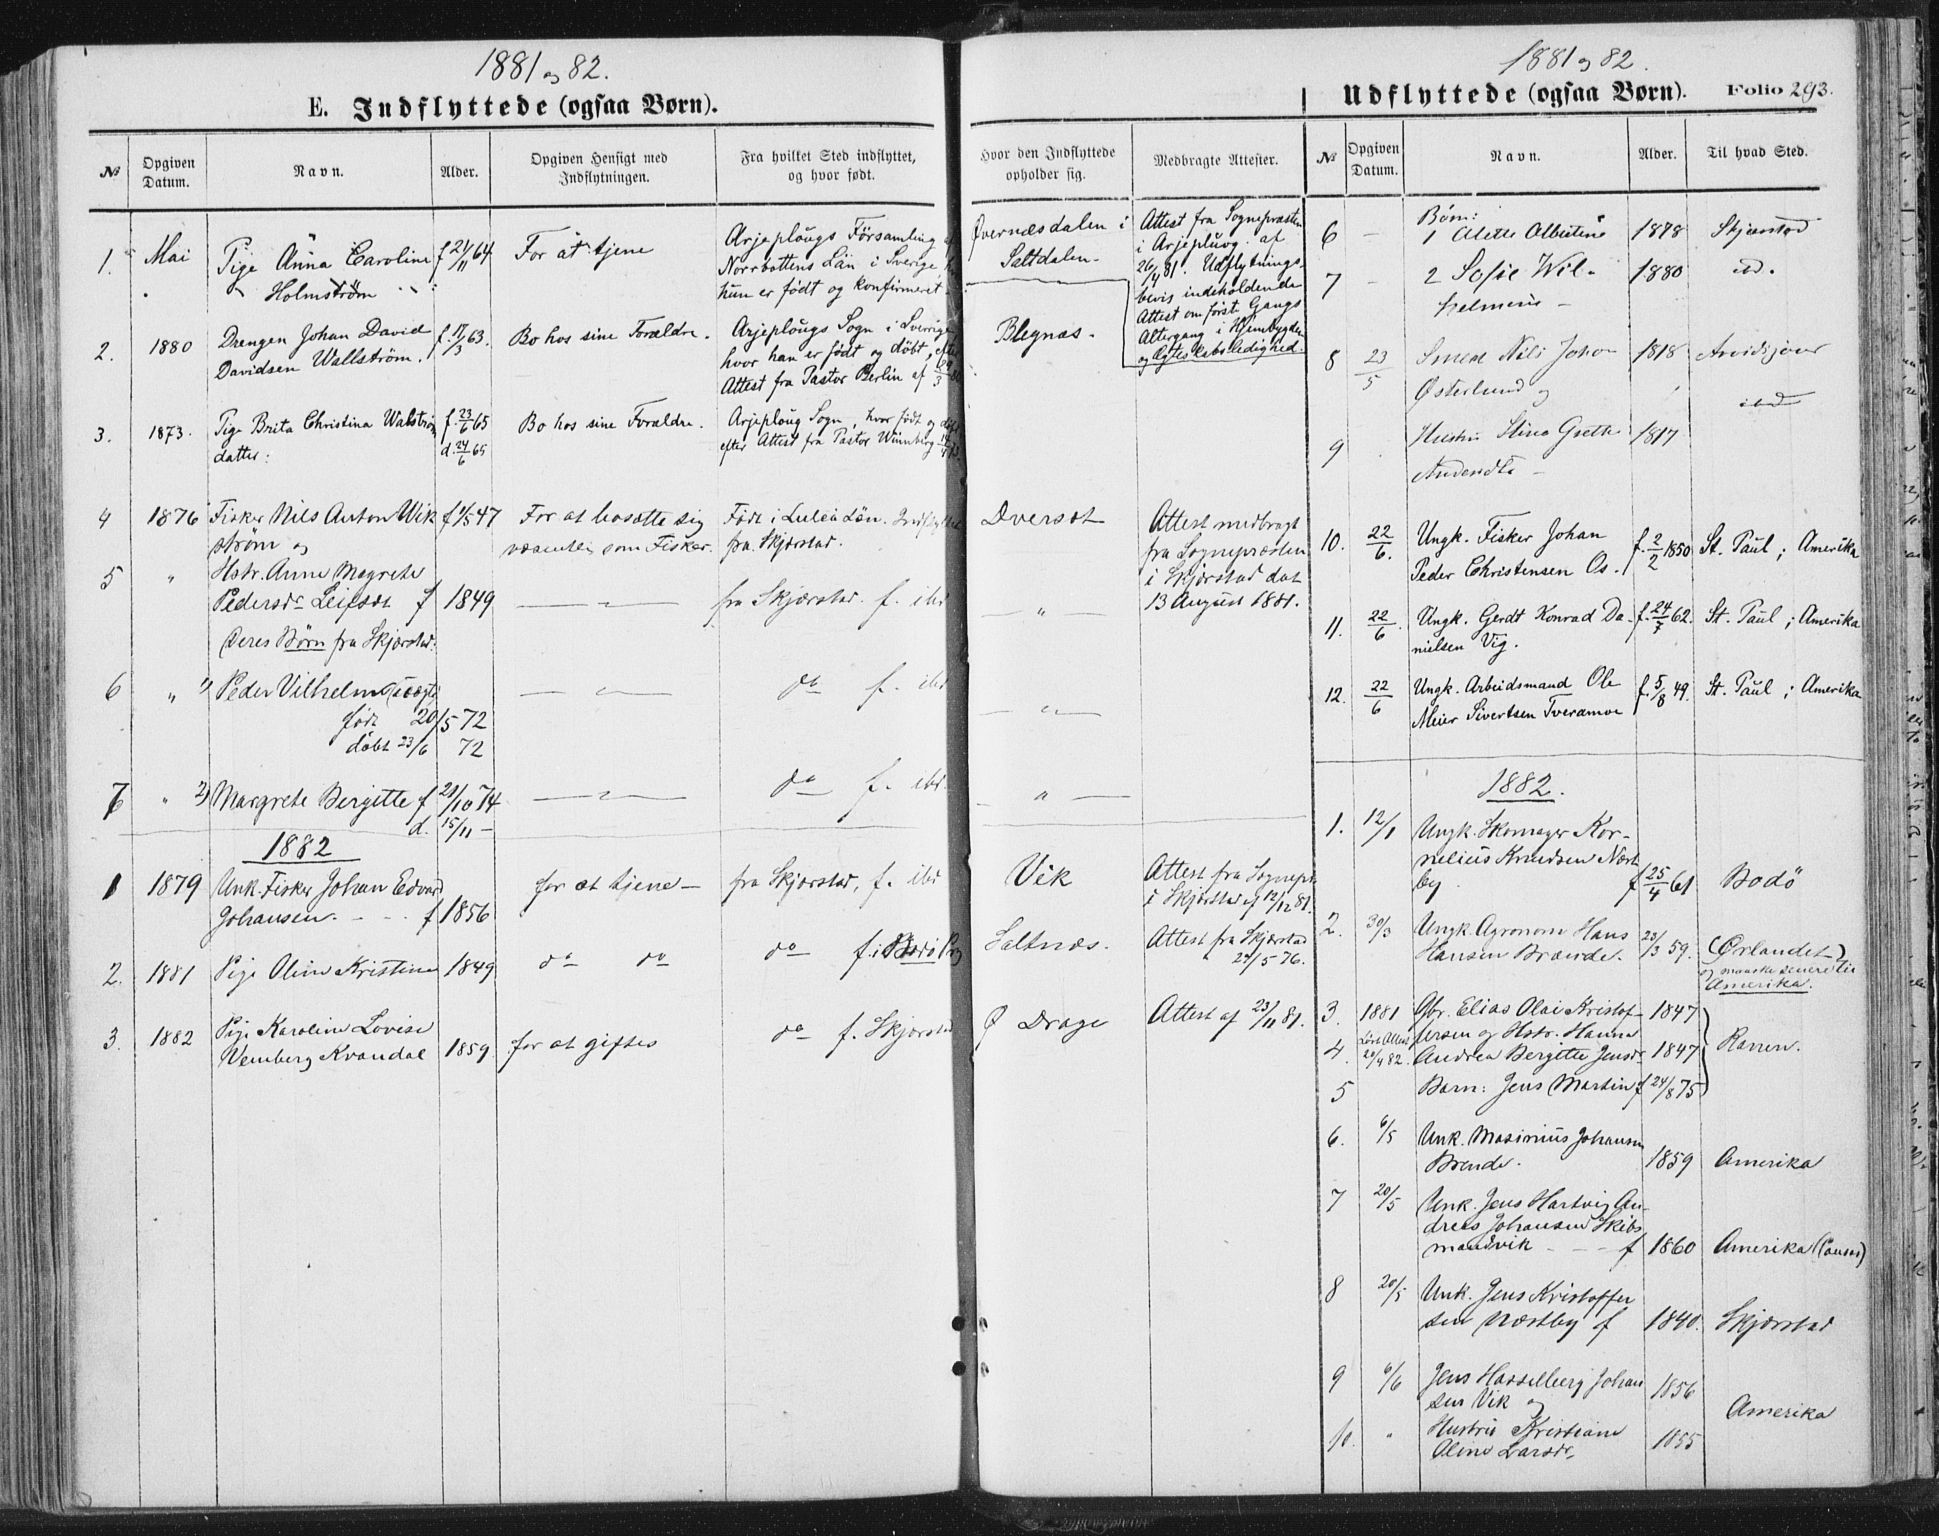 1881 og 82.
E. Indflyttede (ogsaa Børn).
№
Opgiven
Datum.
Navn.
Alder.
Opgiven Hensigt med
Indflytningen.
Fra hvilket Sted indflyttet,
og hvor født.
Hvor den Indflyttede
opholder sig.
Medbragte Attester.
1. Mai Pige Anna Caroline f 21/11 64 For at tjene
Holmström
Arjeplougs Församling
Norrbottens Län i Sverige,
hun er født og konfirmeret
Øvernæsdalen i
Saltdalen.
Attest fra Sognepræsten
i Arjeploug af
26/4 81. Udflytnings-
bevis indeholdende
Attest om første Gangs
Altergang i Hjembygden
og Ægteskabsledighed.
2. 1880 Drengen Johan David f. 17/3 63. Bo hos sine Forældre.
Davidsen Wallström.
Arjeplougs Sogn i Sverrige
hvor han er født og døbt, efter
Attest fra Pastor Berlin af
Blegnæs.
3. 1873. Pige Brita Christina Walström f. 23/6 65 Bo hos sine Forældre.
datter: d. 24/6 65
Arjeploug Sogn, hvor født og døbt
efter Attest fra Pastor Winnberg
4 1876 Fisker Nils Anton Wik f 1/5 47 For at bosætte sig
strøm og væsentlig som Fisker.
Født i Luleå Län. Indflyttet
fra Skjærstad.
Dverset
Attest medbragt
fra Sognepræsten
i Skjærstad dat
13 August 1881.
5 " Hstr. Anne Magrete
Pedersdr Leifset f 1849 — " — fra Skjærstad. f. ibd — " —
Deres Børn fra Skjærstad.
6 " 1) Peder Vilhelm (uægte) — " — do f. ibd — " —
født 20/5 72
døbt 23/6 72
7 " 2) Margrete Bergitte f 20/10 74 — " — do f. ibd. — " —
d. 15/11 —
1882
1 1879 Unk. Fisker Johan Edvard for at tjene — fra Skjærstad, f. ibd Vik
Johansen. - - - f 1856
Attest fra Sognepr.
i Skjærstad af 12/12 81.
2. 1881 Pige Oline Kristine 1849 do do do f. i Bodø Prg Saltnæs.
Attest fra Skjærstad
29/5 76.
3. 1882 Pige Karoline Lovise
Vemberg Kvandal 1859. for at giftes do f. Skjærstad Ø Drage Attest af 23/11 81.
1881 og 82.
Udflyttede (ogsaa Børn). Folio 293.
№
Opgiven
Datum.
Navn.
Alder.
Til hvad Sted.
Børn:
6 — 1 Alette Albertine 1878 Skjærstad
7 — 2 Sofie Wil- 1880 ibd.
helmine —
8 23/5 Smed Nils Johan 1818 Arvidsjaur
Østerlund og
ibd
9 Hustru Stina Greta 1817
Andersdtr —
10. 22/6. Ungk. Fisker Johan
Peder Christensen Os. f. 2/2 1850 St. Paul; Amerika
11. 22/6. Ungk. Gerdt Konrad Da- f. 24/7 62. St. Paul; Amerika
nielsen Vig.
12. 22/6 Ungk. Arbeidsmand Ole f. 5/8 49. St. Paul; Amerika
Meier Sivertsen Tveramoe
1882.
1. 12/1 Ungk. Skomager Kor-
nelius Knudsen Næst
by. f 25/4 61 Bodø
2. 30/3 Ungk. Agronom Hans 23/3 59. (Ørlandet)
Hansen Brænde. og maaske senere til
Amerika.
3. 1881 Gbr. Elias Olai Kristof- 1847
fersen og Hstr. Hanna
4. 20/4 82. Andrea Bergitte Jensdr 1847 Ranen.
5 Barn: Jens Martin f 24/8 75
6. 6/5 Unk. Maximus Johansen
Brende. 1859 Amerika
7 20/5 Unk. Jens Hartvig An-
dreas Johansen Skibs
mandvik - - - f 1860 Amerika
8 20/5 Unk. Jens Kristoffer
sen Næstby f 1840. Skjærstad
9 6/6 Jens Hasselberg Johan 1856
sen Vik og
Amerika
10. " Hustru Kristiane
Oline Larsdr. 1855